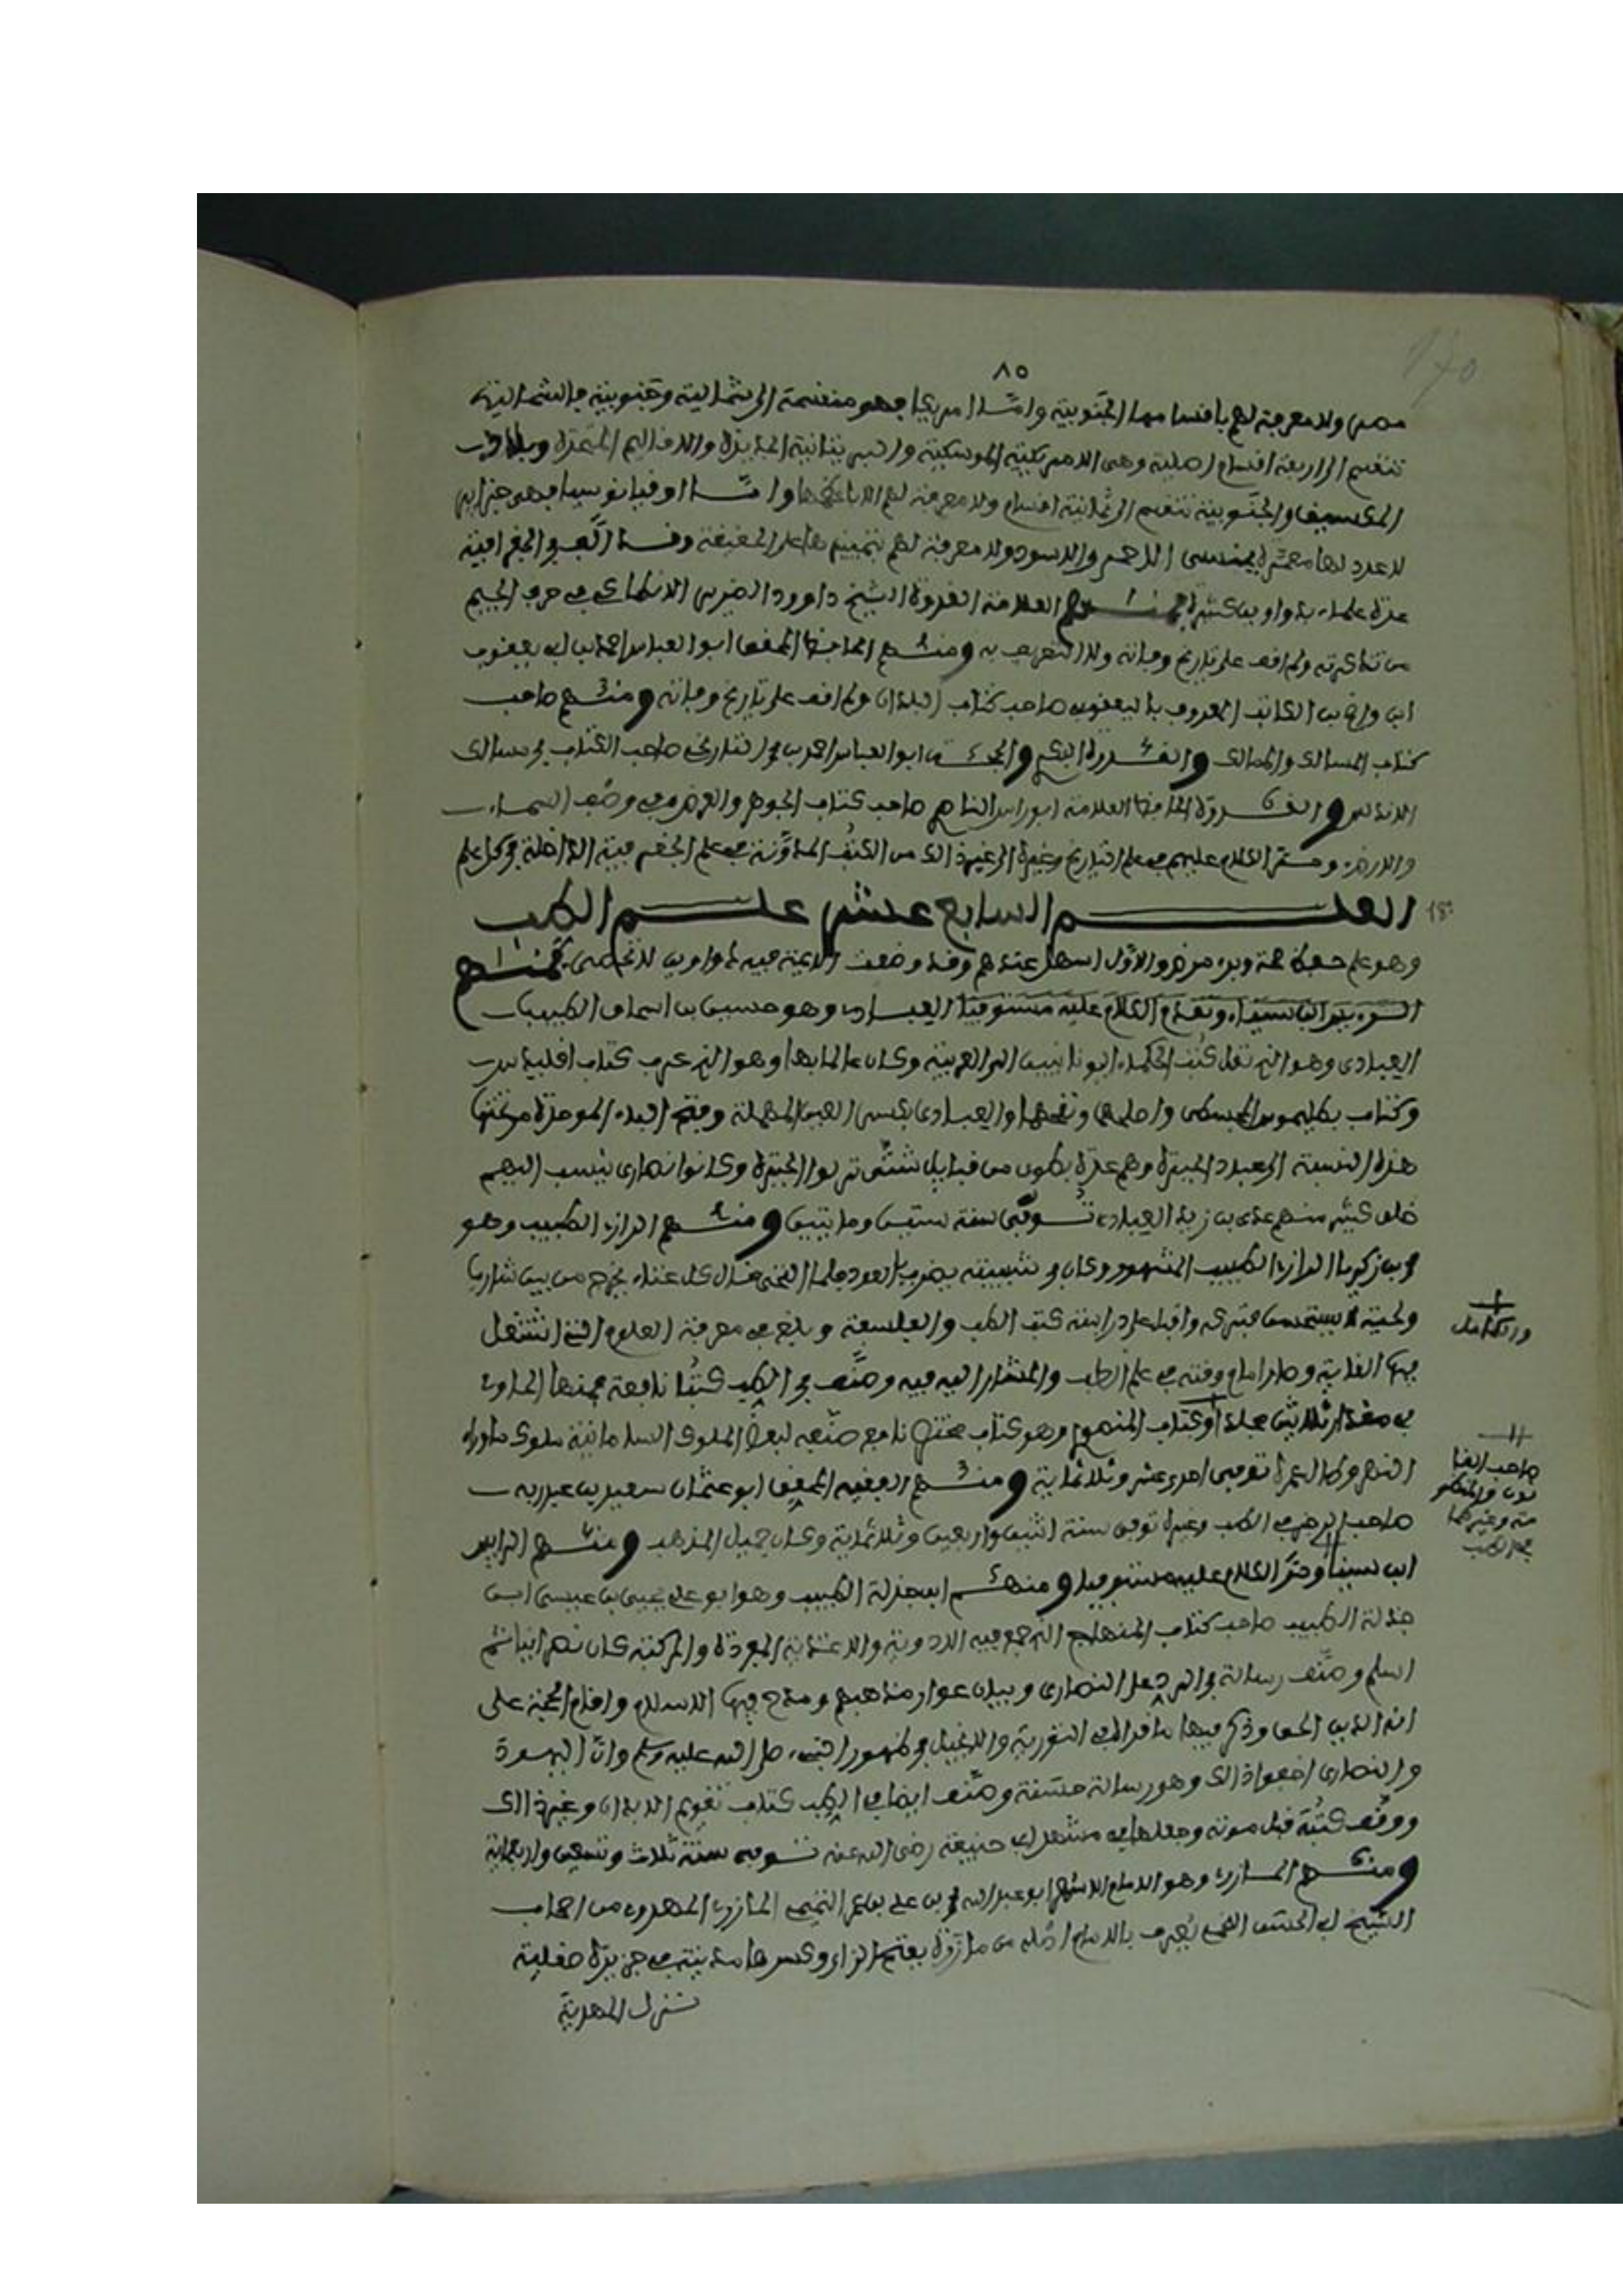 ٨٥
مصر ولا معرفة لهم باقسامها الجنوبية وامّا امريكا فهو منقسمة الى شمالية وجنوبية فالشمالية
تنقسم الى اربعة اقسام اصلية وهى الامريكية الموسكية والانبريتانية الجديدة والاقاليم المتحدة وبلاد
المكسيك والجنوبية تنقسم الى ثمانية اقسام ولا معرفة لهم الا باعظمها وامّا اوقيانوسيا فهى جزاير
لا عدد لها معمّرة بجنسى الاحمر والاسود ولا معرفة لهم بتمييزها على الحقيقة وقد الّف فى الجغرافية
عدة علماء بدواوين كثيرة فمنهم العلامة القدوة الشيخ داوود الضرير الانطاكى فى حرف الجيم
من تذكرته ولم اقف على تاريخ وفاته ولا التعريف به ومنهم الحافظ المحقق ابو العباس احمد بن ابى يعقوب
ابن واضح الكاتب المعروف باليعقوبى صاحب كتاب البلدان ولم اقف على تاريخ وفاته ومنهم صاحب
كتاب المسالك والممالك والقدوة البكرى ابو العباس احمد بن صاحب الكتاب فى مسالك
الاندلس والقدوة الحافظ العلامة ابو راس الناصر صاحب كتاب الجوهر والعرض فى وصف السماء
والارض ومرّ الكلام عليهم فى علم التاريخ وغيره الى غير ذالك من الكتب المدوّنة فى علم الجغرفية الداخلة فى كل علم
العلم السابع عشر علم الطب
وهو علم حفظ صحة وبرء مرض والاول اسهل عندهم وقد وضعت الايمة فيه دواوين لا تحصى فمنهم
ابن سيناء وتقدم الكلام عليه مستوفيا العبادى وهو حسين بن اسحاق الطبيب
العبادى وهو الذى نقل كتب الحكماء اليونانيين الى العربية وكان عالما بها وهو الذى عرب كتاب اقليدس
وكتاب بطليموس المجسطى واصلحها ونقحها والعبادى بكسر العين المهملة وفتح الباء الموحدة مخففها
هذه النسبة الى عباد الحيرة وهم عدة بطون من قبايل شتّى نزلوا الحيرة وكانوا نصارى ينسب اليهم
خلق كثير منهم عدى بن زيد العبادى توفّى سنة ستين وماتيين ومنهم الرازى الطبيب وهو
محمد بن زكريا الرازى الطبيب المشهور وكان فى شبيبته يضرب بالعود فلما التحى قال كل غناء يخرج من بين شارب
ولحية لا يستحسن فتركه واقبل على دراسة كتب الطب والفلسفة وبلغ فى معرفة العلوم التى اشتغل
فيها الغاية وصار امام وقته فى علم الطب والمشار اليه فيه وصنّف فى الطب كتبا نافعة فمنها الحاوى
فى مقدار ثلاثين مجلدا وكتاب المنصورى وهو كتاب مختصر نافع صنّفه لبعض الملوك السامانية ملوك ماوراء
النهر وطال عمره توفى احدى عشر وثلاثماية ومنهم الفقيه المحقق ابو عثمان سعيد بن عبد ربه
صاحب الرجز فى الطب وغيره توفى سنة اثنين واربعين وثلاثماية وكان جميل المذهب ومنهم الرايس
ابن سينا ومرّ الكلام عليه مستوفيا ومنهم ابن جزلة الطبيب وهو ابو على يحيى بن عيسى ابن
جزلة الطبيب صاحب كتاب المنهاج الذى جمع فيه الادوية والاغذية المفردة والمركبة كان نصرانيا ثم
اسلم وصنّف رسالة فى الرد على النصارى وبيان عوار مذاهبهم ومدح فيها الاسلام واقام الحجة على
انه الدين الحق وذكر فيها ما قراه فى التورية والانجيل فى ظهور النبى صلى الله عليه وسلم وانّ اليهود
والنصارى اخفوا ذالك وهو رسالة حسنة وصنّف ايضا فى الطب كتاب تقويم الابدان وغير ذالك
ووقف كتبه قبل موته وجعلها فى مشهد ابى حنيفة رضى الله عنه توفى سنة ثلاث وتسعين واربعماية
ومنهم المازرى وهو الامام الاشهر ابو عبد الله محمد بن على بن عمر التميمى المازرى المهدوى من اصحاب
الشيخ ابى الحسن اللخمى يُعرف بالامام اصله من مازرة بفتح الزاء وكسرها مدينة فى جزيرة صقلية
نزل المهدية
والكامل
صاحب القا
نون والمنظو
مة وغيرهما
فى الطب